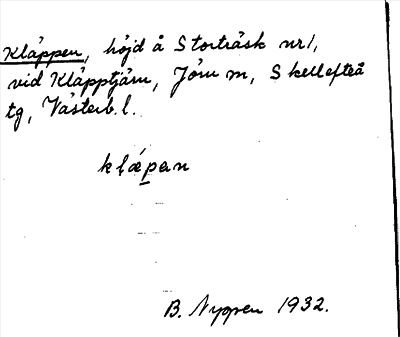 Kläppen, höjd å Storträsk nr 1,
vid Kläpptjärn, Jörn sn, Skellefteå
tg, Västerb. l.
klǽpan
B. Nyppen 1932.